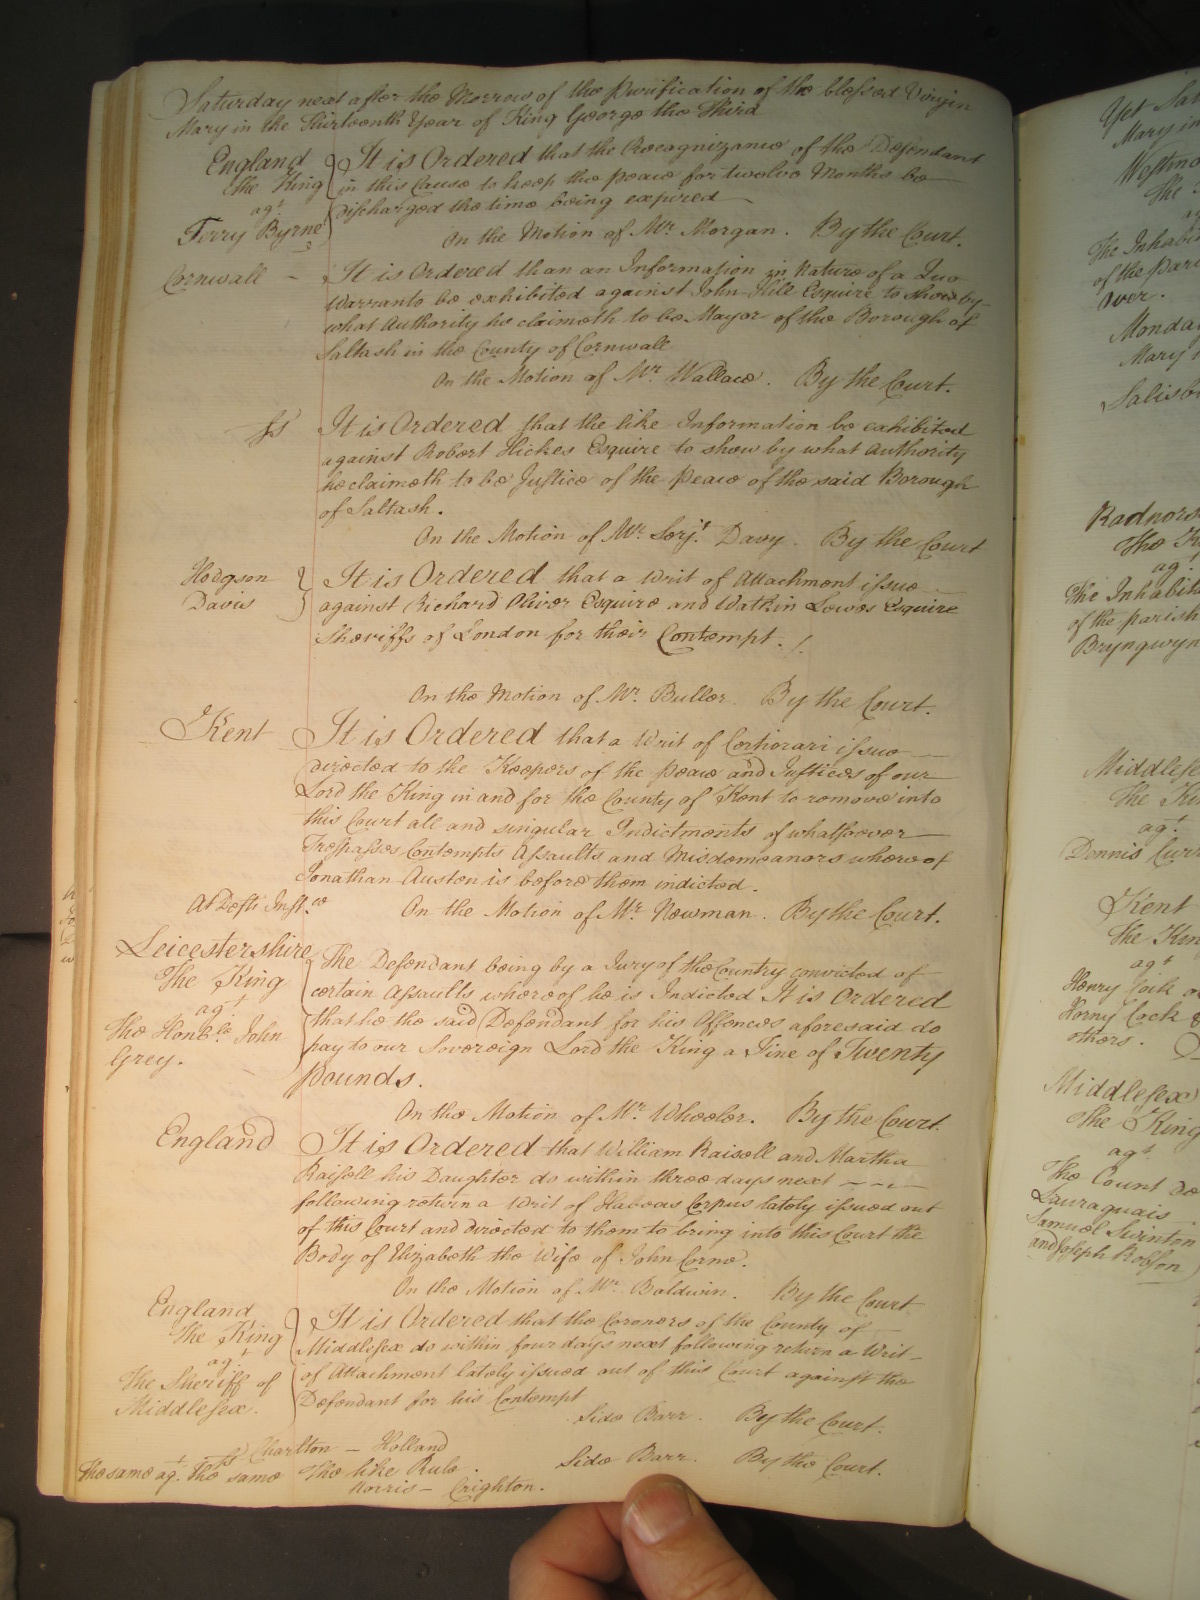 Saturday next after the Morrow of the Purification of the blessed Virgin
Mary in the Thirteenth Year of King George the Third
England
The King
agt.
Terry Byrne
It is Ordered that the Recognizance of the Defendant
in this Cause to keep the peace for twelve Months be
discharged the time being expired
On the Motion of Mr. Morgan. By the Court.
Cornwall
It is Ordered than an Information in Nature of a Quo
Warranto be exhibited against John Hill Esquire to show by
what Authority he claimeth to be Mayor of the Borough of
Saltash in the County of Cornwall
On the Motion of Mr. Wallace. By the Court.
ss
It is Ordered that the like Information be exhibited
against Robert Hickes Esquire to show by what Authority
he claimeth to be Justice of the Peace of the said Borough
of Saltash.
On the Motion of Mr. Serjt. Davy. By the Court
Hodgson
Davis
It is Ordered that a Writ of Attachment issue
against Richard Oliver Esquire and Watkin Lewes Esquire
Sheriffs of London for their Contempt.
On the Motion of Mr. Buller. By the Court.
Kent
It is Ordered that a Writ of Certiorari issue
directed to the Keepers of the peace and Justices of our
Lord the King in and for the County of Kent to remove into
this Court all and singular Indictments of whatsoever
Trespasses Contempts Assaults and Misdemeanors whereof
Jonathan Austen is before them indicted.
At Defts Instce
On the Motion of Mr. Newman. By the Court.
Leicestershire
The King
agt
The Honble. John
Grey.
The Defendant being by a Jury of the Country convicted of
certain Assaults whereof he is Indicted It is Ordered
that he the said Defendant for his Offences aforesaid do
pay to our Sovereign Lord the King a Fine of Twenty
Pounds.
On the Motion of Mr. Wheeler. By the Court.
England
It is Ordered that William Raisell and Martha
Raisell his Daughter do within three days next
following return a Writ of Habeas Corpus lately issued out
of this Court and directed to them to bring into this Court the
Body of Elizabeth the Wife of John Corne.
On the Motion of Mr. Baldwin. By the Court
England
The King
agt.
The Sheriff of
Middlesex.
It is Ordered that the Coroners of the County of
Middlesex do within four days next following return a Writ
of Attachment lately issued out of this Court against the
Defendant for his Contempt
Side Barr. By the Court.
Charlton - Holland
ss
The same agt. the same The like Rule. Side Barr. By the Court.
Norris - Crighton.
Yet Sat
Mary in
Westmo
The
The Inhabi
of the pari
Over.
Monday
Mary
Salisb
Radnors
The K
agt.
The Inhabit
of the parish
Bryngwyn
Middlese
The Kin
agt.
Dennis Curr
Kent
The Kin
agt
Henry Cock
Henry Cock
others.
Middlesex
The King
agt.
The Count de
Lauraguais
Samuel Swinton
and Joseph Robson